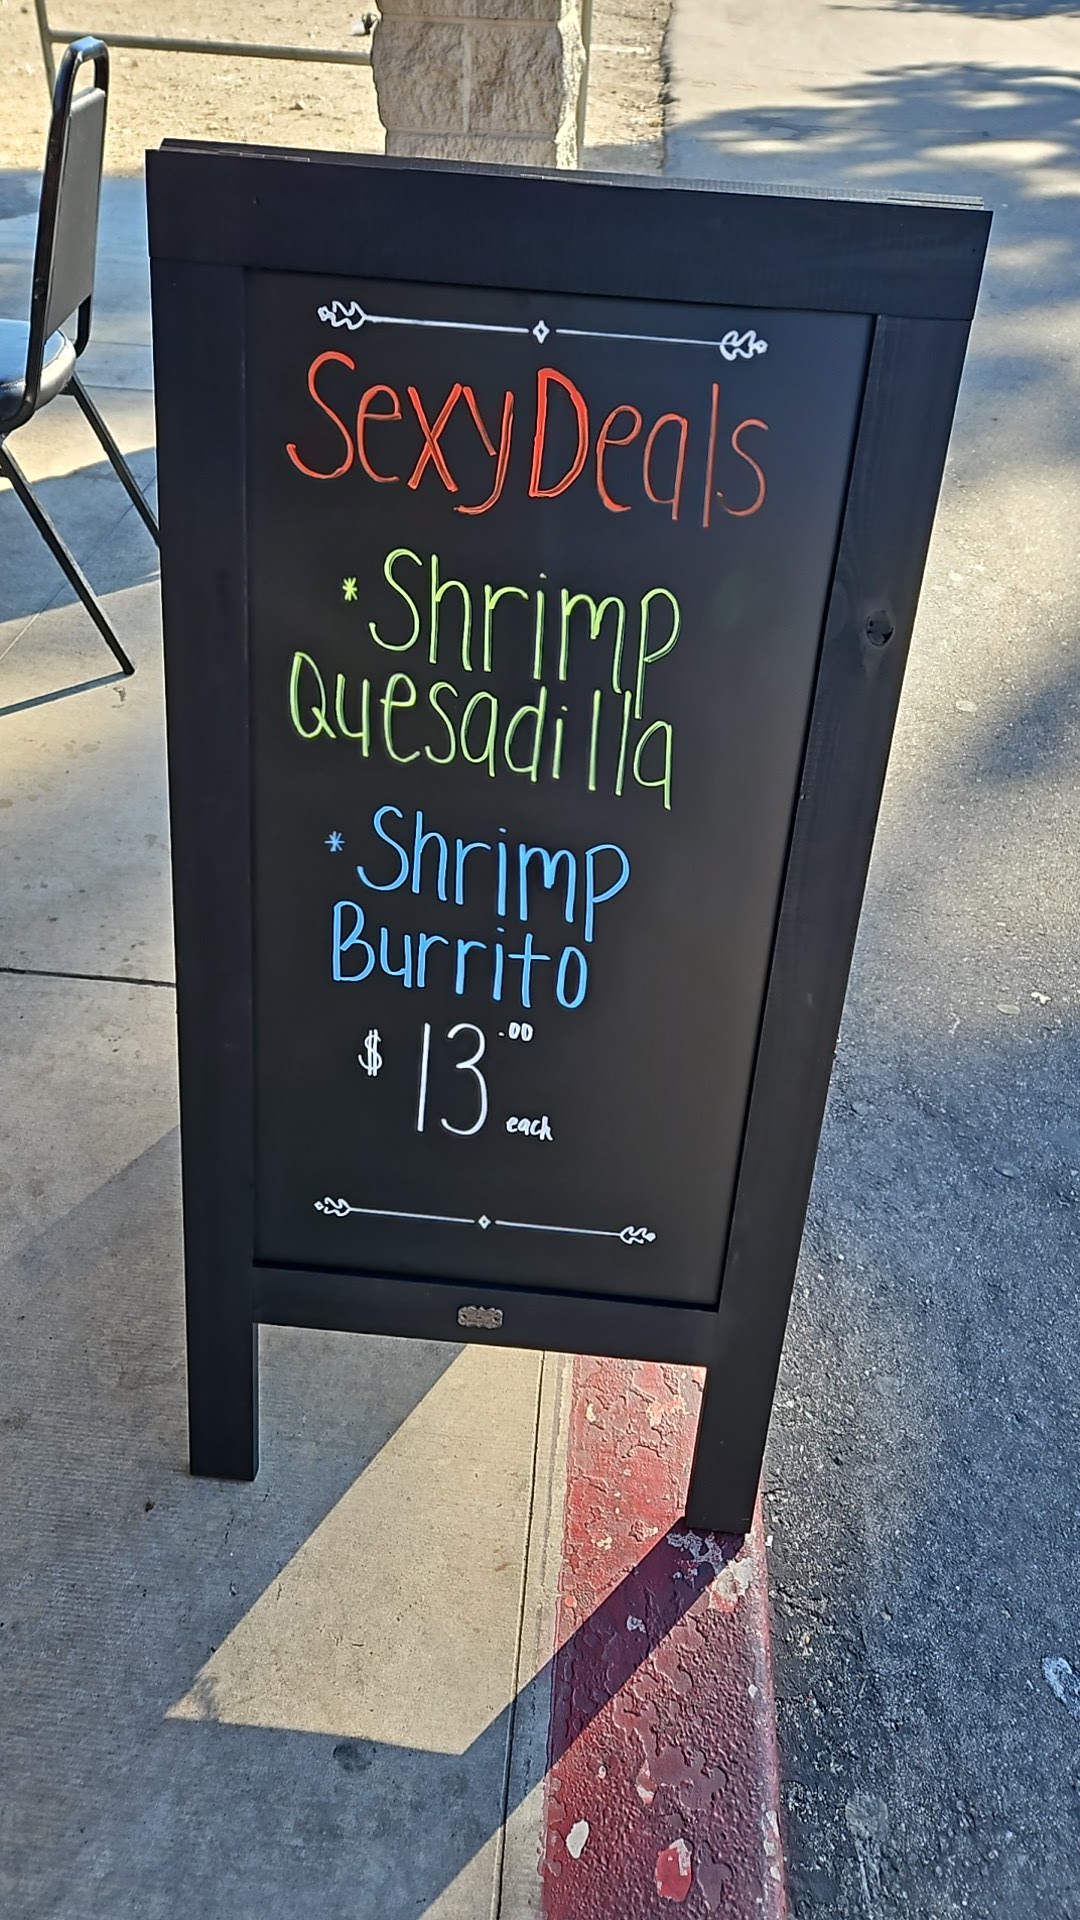 Sexy Deals
* Shrimp
Quesadilla
* Shrimp
Burrito
$13.00 each